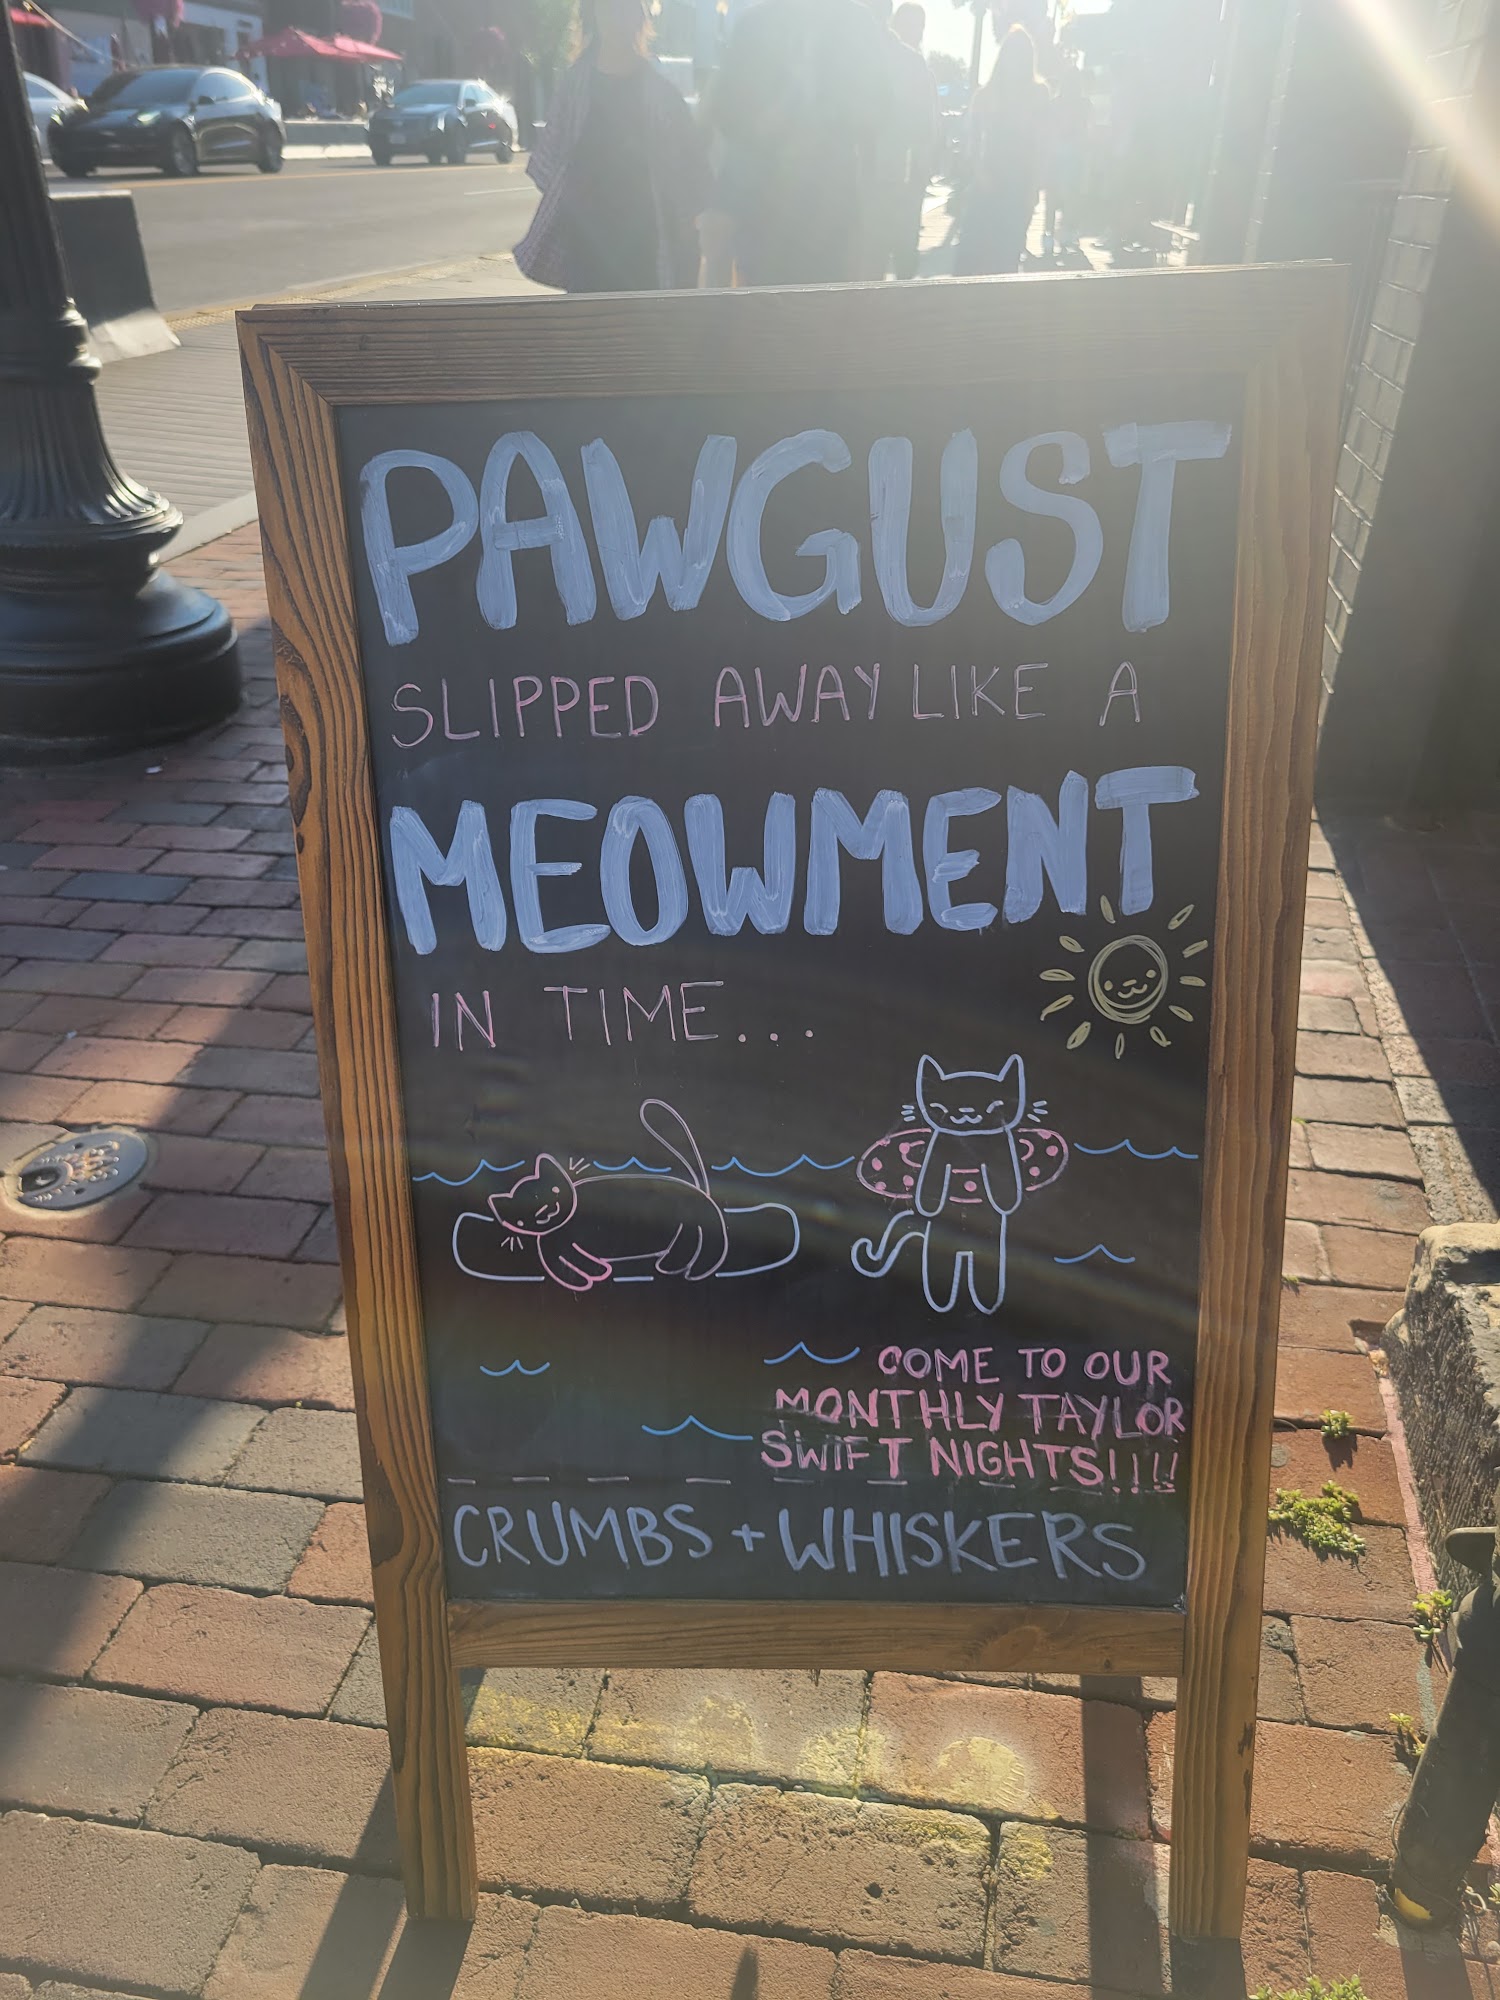 PAWGUST
SLIPPED AWAY LIKE A
MEOWMENT
IN TIME...
COME TO OUR
MONTHLY TAYLOR
SWIFT NIGHTS!!!!
CRUMBS + WHISKERS